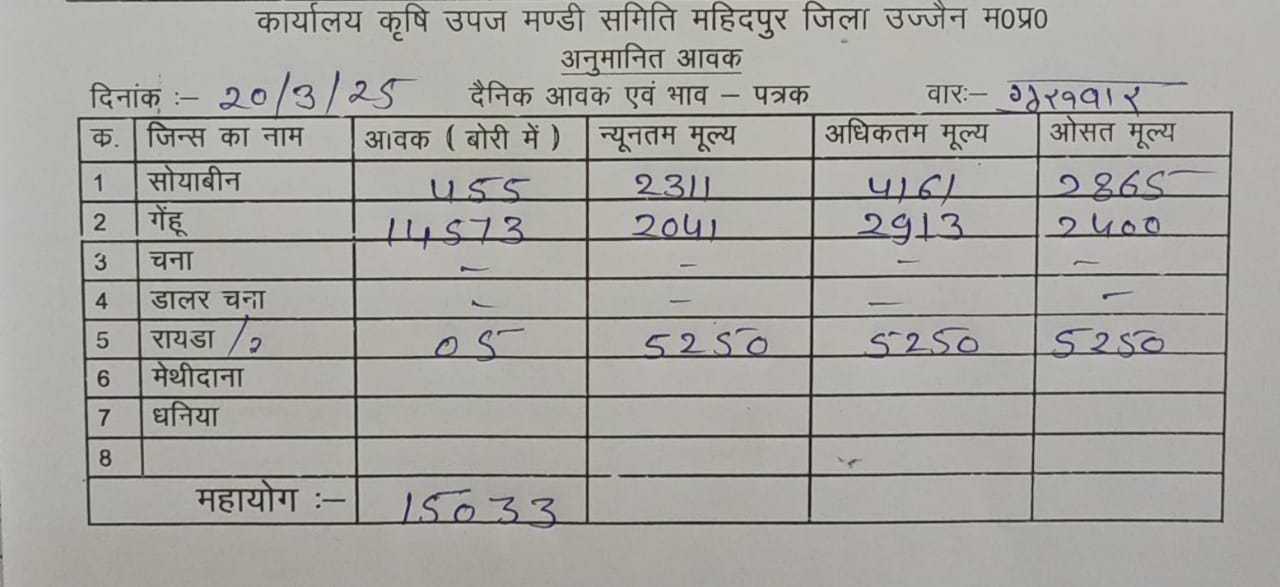 कार्यालय कृषि उपज मण्डी समिति महिदपुर जिला उज्जैन म0प्र0
अनुमानित आवक
दिनांक :- 20/3/25 दैनिक आवक एवं भाव - पत्रक वारः- गुरुवार
क. जिन्स का नाम आवक ( बोरी में ) न्यूनतम मूल्य अधिकतम मूल्य ओसत मूल्य
1 सोयाबीन 455 2311 4161 2865
2 गेंहू 14573 2041 2913 2400
3 चना - - - -
4 डालर चना - - - -
5 रायडा /2 05 5250 5250 5250
6 मेथीदाना
7 धनिया
8
महायोग :- 15033